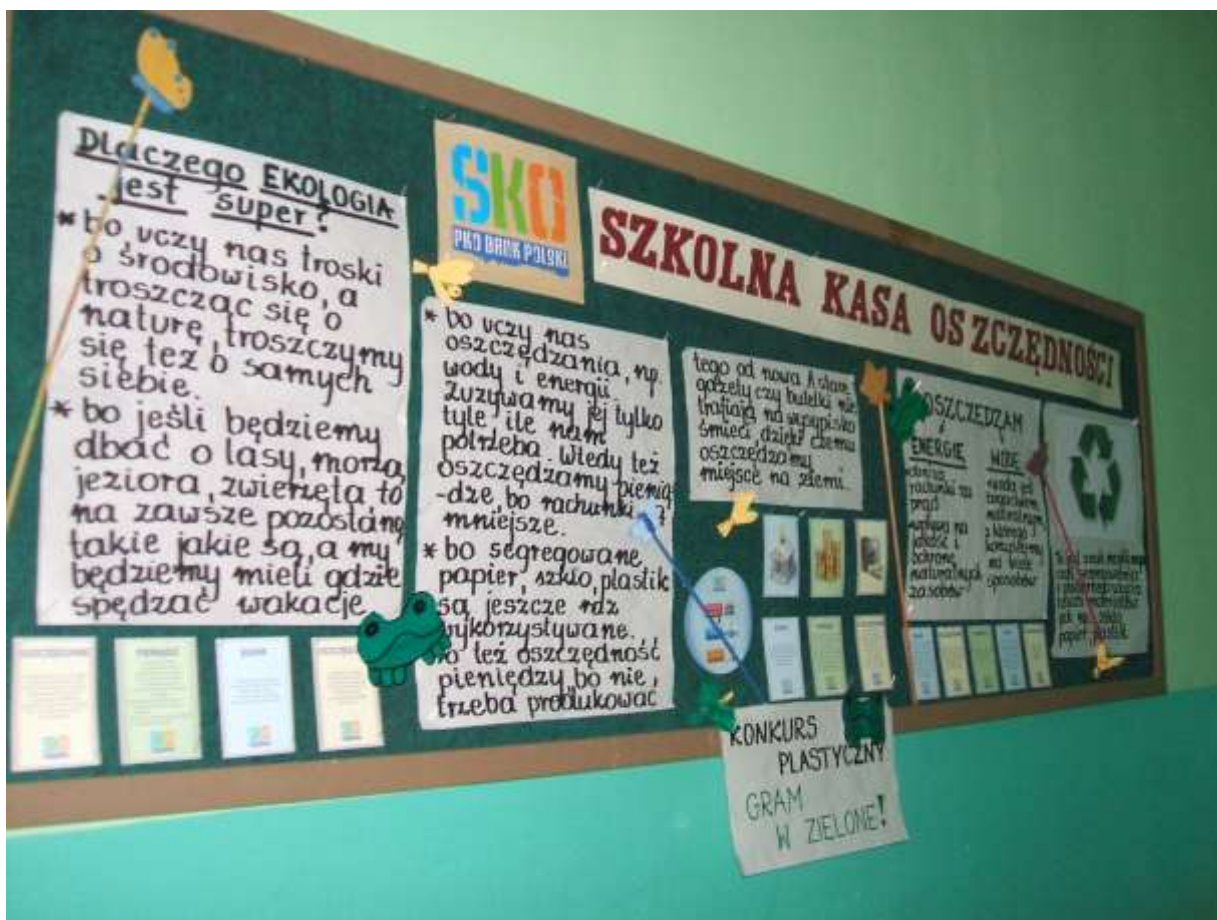 Dlaczego EKOLOGIA
jest super?
* bo uczy nas troski
o środowisko, a
troszcząc się o
naturę, troszczymy
się też o samych
siebie.
* bo jeśli będziemy
dbać o lasy, morza,
jeziora, zwierzęta to
na zawsze pozostaną
takie jakie są, a my
będziemy mieli gdzie
spędzać wakacje
SKO
PKO BANK POLSKI
SZKOLNA KASA OSZCZĘDNOŚCI
* bo uczy nas
oszczędzania, np.
wody i energii.
Zużywamy jej tylko
tyle ile nam
potrzeba. Wtedy też
oszczędzamy pienią
-dze, bo rachunki są
mniejsze.
* bo segregowane
papier, szkło, plastik
są jeszcze raz
wykorzystywane.
to też oszczędność
pieniędzy, bo nie
trzeba produkować
tego od nowa. A stare
gazety czy butelki nie
trafiają na wysypisko
śmieci dzięki czemu
oszczędzamy
miejsce na ziemi.
OSZCZĘDZAM
ENERGIĘ
rachunki za
prąd
wpływa na
jakość i
ochronę
naturalnych
zasobów
WODĘ
woda jest
bogactwem
naturalnym,
z którego
korzystamy
na wiele
sposobów
jak np. szkło,
papier, plastik
KONKURS
PLASTYCZNY
GRAM
W ZIELONE!